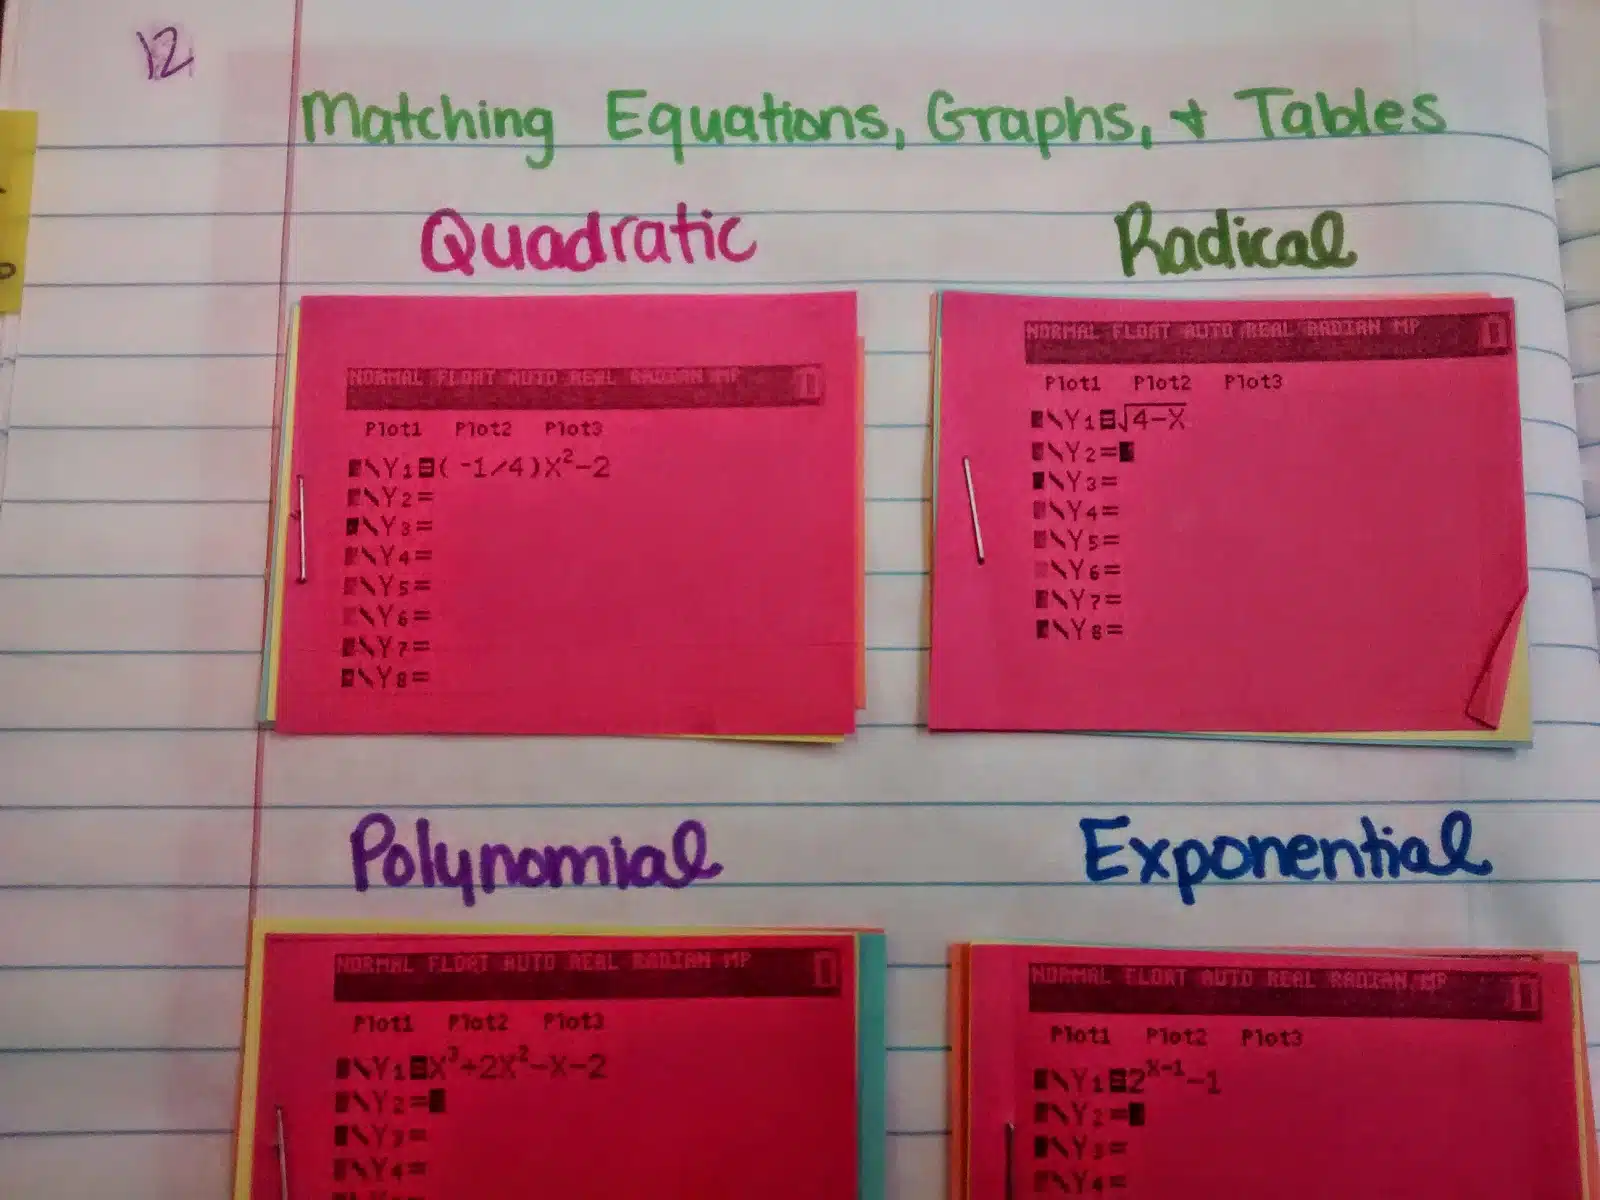 12
Matching Equations, Graphs, & Tables
Quadratic
NORMAL FLOAT AUTO REAL RADIAN MP
Plot1 Plot2 Plot3
\Y1=(-1/4)X²-2
\Y2=
\Y3=
\Y4=
\Y5=
\Y6=
\Y7=
\Y8=
Radical
NORMAL FLOAT AUTO REAL RADIAN MP
Plot1 Plot2 Plot3
\Y1=√4-X
\Y2=
\Y3=
\Y4=
\Y5=
\Y6=
\Y7=
\Y8=
Polynomial
NORMAL FLOAT AUTO REAL RADIAN MP
Plot1 Plot2 Plot3
\Y1=X³+2X²-X-2
\Y2=
\Y3=
\Y4=
Exponential
NORMAL FLOAT AUTO REAL RADIAN MP
Plot1 Plot2 Plot3
\Y1=2^X-1 -1
\Y2=
\Y3=
\Y4=